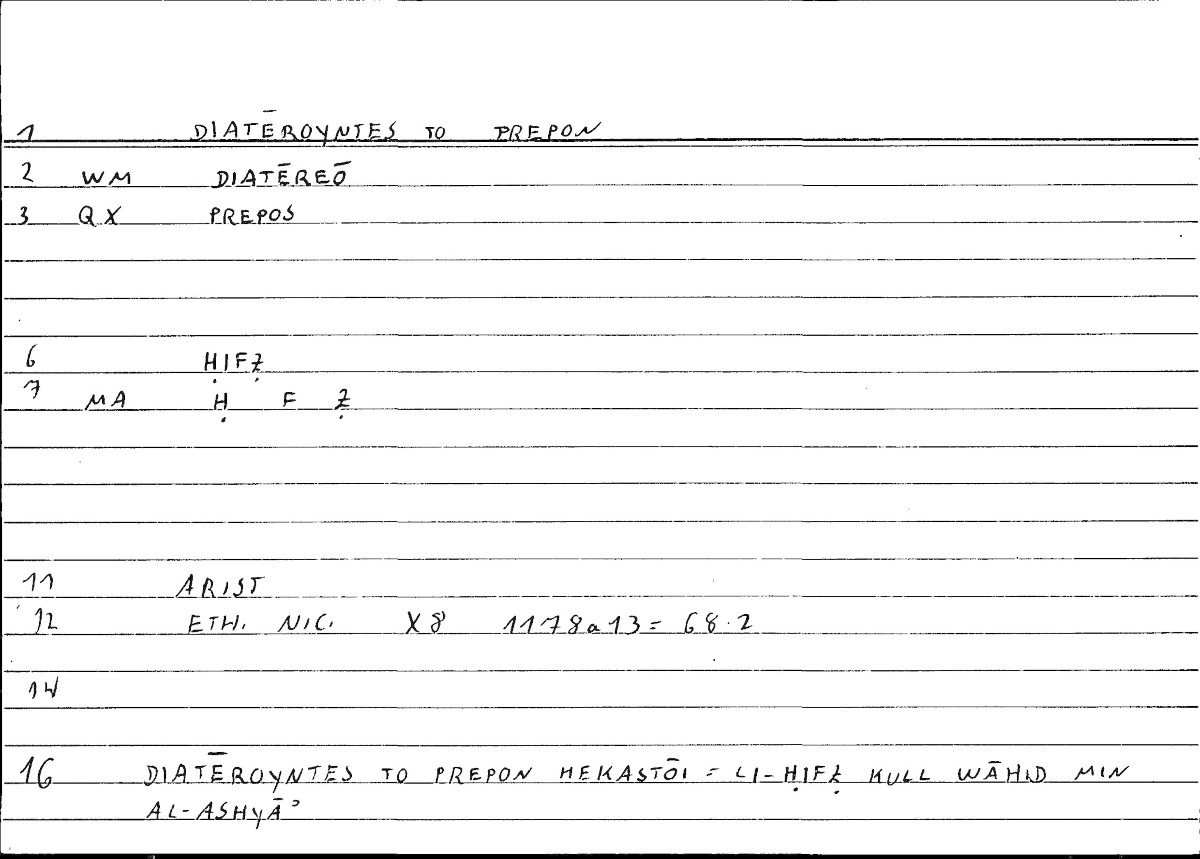 1 DIATĒROYNTES TO PREPON
2 WM DIATĒREŌ
3 QX PREPOS
6 ḤIFẒ
7 MA Ḥ F Ẓ
11 ARIST
12 ETH. NIC. X8 1178a13 = 68.2
14
16 DIATĒROYNTES TO PREPON HEKASTŌI = LI-ḤIFẒ KULL WĀHID MIN
AL-ASHYĀʾ